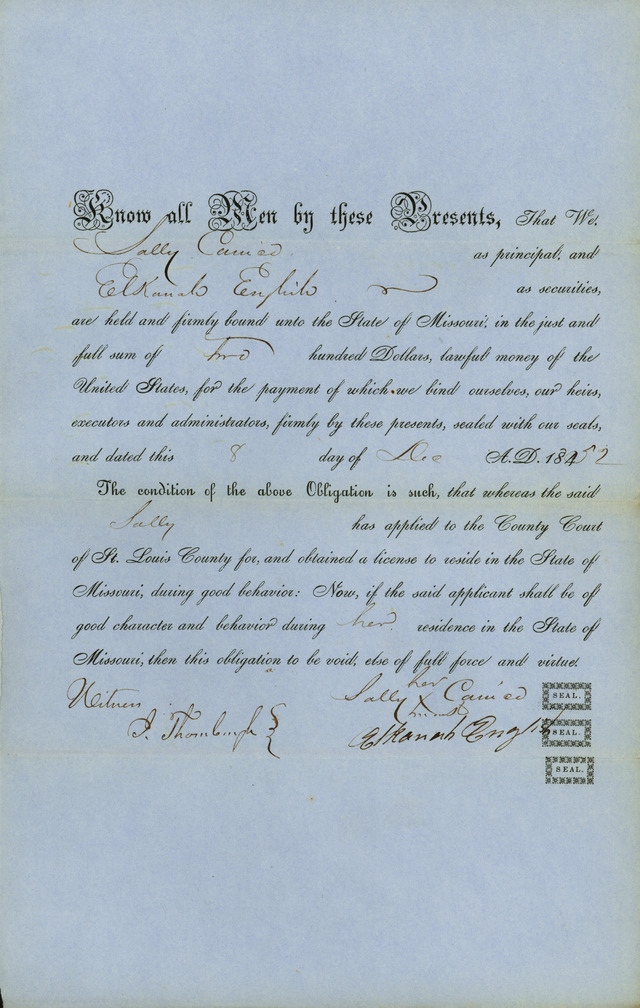 Know all Men by these Presents, That We,
Sally
as principal, and
Elkanah English
as securities,
are held and firmly bound unto the State of Missouri, in the just and
full sum of two hundred Dollars, lawful money of the
United States, for the payment of which we bind ourselves, our heirs,
executors and administrators, firmly by these presents, sealed with our seals,
and dated this 8 day of Dec A.D. 18452
The condition of the above Obligation is such, that whereas the said
Sally has applied to the County Court
of St. Louis County for, and obtained a license to reside in the State of
Missouri, during good behavior: Now, if the said applicant shall be of
good character and behavior during her residence in the State of
Missouri, then this obligation to be void, else of full force and virtue.
Witness
Sally her X mark
SEAL.
J. Thornburgh
Elkanah English
SEAL.
SEAL.